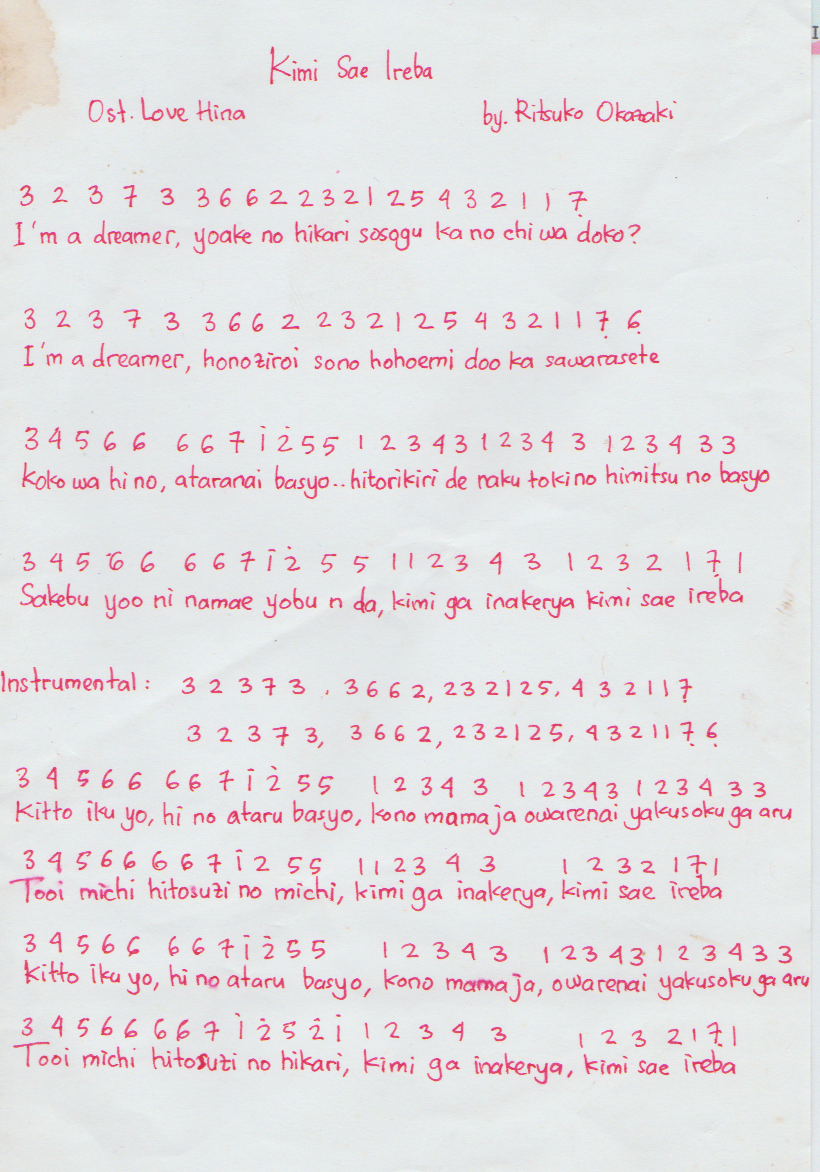 Kimi Sae Ireba
Ost. Love Hina by. Ritsuko Okazaki
3 2 3 7 3 3 6 6 2 2 3 2 1 2 5 4 3 2 1 1 7̣
I'm a dreamer, yoake no hikari sosogu ka no chi wa doko?
3 2 3 7 3 3 6 6 2 2 3 2 1 2 5 4 3 2 1 1 7̣ 6̣
I'm a dreamer, honoziroi sono hohoemi doo ka sawarasete
3 4 5 6 6 6 6 7 1̇ 2̇ 5 5 1 2 3 4 3 1 2 3 4 3 1 2 3 4 3 3
Koko wa hi no, ataranai basyo.. hitorikiri de naku toki no himitsu no basyo
3 4 5 6 6 6 6 7 1̇ 2̇ 5 5 1 1 2 3 4 3 1 2 3 2 1 7̣ 1
Sakebu yoo ni namae yobu n da, kimi ga inakerya kimi sae ireba
Instrumental : 3 2 3 7 3 , 3 6 6 2, 2 3 2 1 2 5, 4 3 2 1 1 7̣
3 2 3 7 3, 3 6 6 2, 2 3 2 1 2 5, 4 3 2 1 1 7̣ 6̣
3 4 5 6 6 6 6 7 1̇ 2̇ 5 5 1 2 3 4 3 1 2 3 4 3 1 2 3 4 3 3
Kitto iku yo, hi no ataru basyo, kono mama ja owarenai yakusoku ga aru
3 4 5 6 6 6 6 7 1̇ 2 5 5 1 1 2 3 4 3 1 2 3 2 1 7 1
Tooi michi hitosuzi no michi, kimi ga inakerya, kimi sae ireba
3 4 5 6 6 6 6 7 1̇ 2̇ 5 5 1 2 3 4 3 1 2 3 4 3 1 2 3 4 3 3
Kitto iku yo, hi no ataru basyo, kono mama ja, owarenai yakusoku ga aru
3 4 5 6 6 6 6 7 1̇ 2̇ 5 2̇ 1̇ 1 2 3 4 3 1 2 3 2 1 7̣ 1
Tooi michi hitosuzi no hikari, kimi ga inakerya, kimi sae ireba